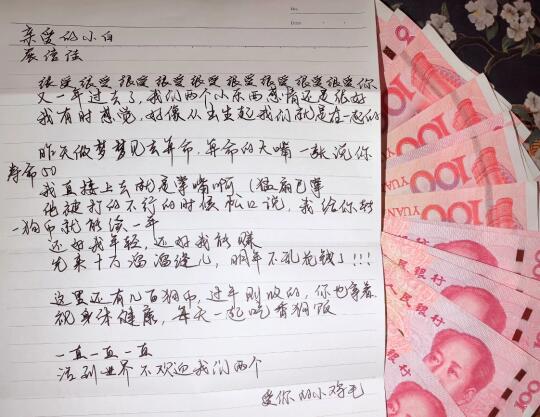 No.
Date
亲爱的小白
展信佳
很爱很爱很爱很爱很爱很爱很爱很爱你
又一年过去了，我们两个小东西感情还是很好
我有时感觉，好像从出生起我们就是在一起的
昨天做梦梦见去算命，算命的大嘴一张说你
寿命50
我直接上去就是掌嘴啊（猛扇巴掌
他被打的不行的时候松口说，我给你
一狗币就能涂一年
还好我年轻，还好我能赚
先来十万溜溜缝儿，明年不乱花钱了！！！
这里还有几百狗币，过年刚收的，你也拿着
祝身体健康，每天一起吃香狗饭
一直一直一直
活到世界不欢迎我们两个
爱你的小鸡毛
100
YUAN
100
YUAN
100
100
100
中国人民银行
人民银行